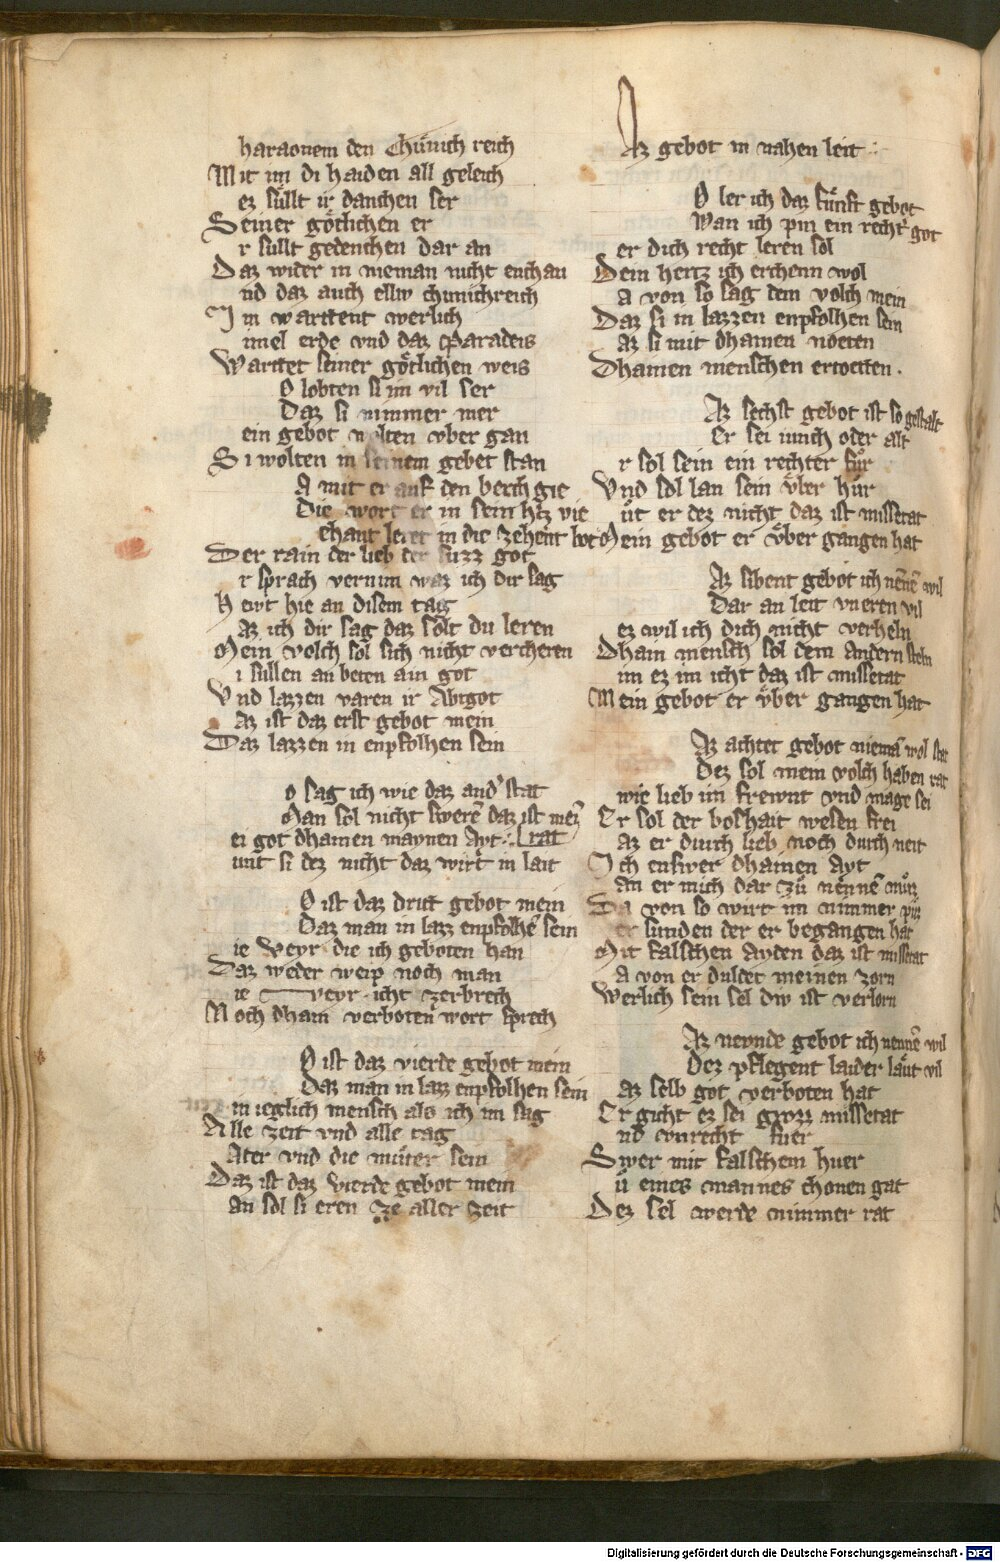 haraonem den Chünich reich
Mit im di haiden all geleich
ez süllt ir danchen ser
Seiner götlichen er
r süllt gedenchen dar an
Daz wider in nieman nicht enchan
nd daz auch ellw chunichreich
Im warttent werlich
imel erde vnd daz paradeis
Warttet seiner götlichen weis
O lobten si im vil ser
Daz si nimmer mer
ein gebot wolten vber gan
Si wolten in seinem gebet stan
A mit er auf den berch gie
Die wort er in sein htz vie
chant leret in die zehent wort
Der rain der lieb der suzz got
r sprach vernim waz ich dir sag
Hewt hie an disem tag
Az ich dir sag daz solt du leren
Mein volch sol sich nicht vercheren
i süllen an beten ain got
Vnd lazzen varen ir Abtgot
Az ist daz erst gebot mein
Daz lazzen in enpfolhen sein
o sag ich wie daz and' stat
Man sol nicht swerē daz ist mei
ei got dhainen maynen Ayt : rat
unt si dez nicht daz wirt in lait
O ist daz dritt gebot mein
Daz man in lazz enpfolhē sein
ie Veyr die ich geboten han
Daz weder weip noch man
ie veyr icht zerbrech
Noch dhain verboten wort sprech
O ist daz vierde gebot mein
Daz man in lazz enpfolhen sein
in ieglich mensch als ich im sag
Alle zeit vnd alle tag
Ater vnd die muter sein
Daz ist daz vierde gebot mein
an sol si eren ze aller zeit
Az gebot in nahen leit :
O ler ich daz fünft gebot
Wan ich pin ein recht' got
er dich recht leren sol
Dein hertz ich erchenn wol
A von so sag dem volch mein
Daz si in lazzen enpfolhen sein
az si mit dhainen noeten
Dhainen menschen ertoetten .
Az sechst gebot ist so gestalt
Er sei iunch oder alt
r sol sein ein rechter für
Vnd sol lan sein vber hür
üt er dez nicht daz ist missetat
Mein gebot er vber gangen hat
Az sibent gebot ich nēnē wil
Dar an leit vneren vil
ez wil ich dich nicht verheln
Dhain mensch sol dem andern steln
im ez im icht daz ist missetat
Mein gebot er vber gangen hat
Az achtet gebot niemā wol stat
Dez sol mein volch haben rat
wie lieb im frewnt vnd mage sei
Er sol der boshait wesen frei
az er durch lieb noch durch neit
Ich enswer dhainen Ayt
an er mich dar zů nēnnē můz
Da von so wirt im nimmer půz
er sunden der er begangen hat
Mit falschen ayden daz ist missetat
A von er duldet meinen zorn
Werlich sein sel diw ist verlorn
Az neynde gebot ich nennē wil
Dez pflegent laider läut vil
az selb got verboten hat
Er gicht ez sei grozz missetat
nd vnrecht fuer
Swer mit falschem huer
ů eines mannes chonen gat
Dez sel werde nimmer rat
Digitalisierung gefördert durch die Deutsche Forschungsgemeinschaft - DFG